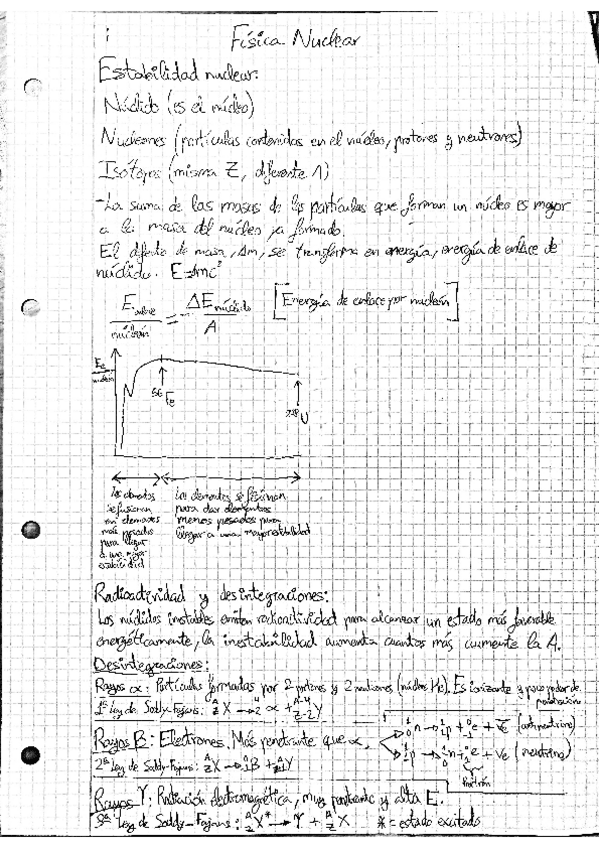 Física Nuclear
Estabilidad nuclear:
Núclido (es el núcleo)
Nucleones (partículas contenidas en el núcleo, protones y neutrones)
Isótopos (misma Z, diferente A)
-La suma de las masas de las partículas que forman un núcleo es mayor
a la masa del núcleo ya formado.
El defecto de masa, Δm, se transforma en energía, energía de enlace de
núclido. E=Δmc²
E enlace / nucleón = ΔE núclido / A [Energía de enlace por nucleón]
E e / nucleón
56 Fe
238 U
los elementos se fusionan
en elementos más pesados para llegar a una mayor estabilidad
los elementos se fisionan
para dar elementos
menos pesados para
llegar a una mayor estabilidad
Radioactividad y desintegraciones:
Los núclidos inestables emiten radioactividad para alcanzar un estado más favorable
energéticamente, la inestabilidad aumenta cuanto más aumente la A.
Desintegraciones:
Rayos α: Partículas formadas por 2 protones y 2 neutrones (núcleos He). Es ionizante y poco poder de
penetración
1ª Ley de Soddy-Fajans: A Z X → 4 2 α + A-4 Z-2 Y
Rayos B: Electrones. Más penetrante que α,
1 0 n → 1 1 p + 0 -1 e + Ve (antineutrino)
1 1 p → 1 0 n + e + Ve (neutrino)
Positrón
2ª Ley de Soddy-Fajans: A Z X → B + Y
Rayos γ: Radiación electromagnética, muy penetrante y alta E.
3ª Ley de Soddy-Fajans: A Z X* → γ + A Z X * = estado excitado